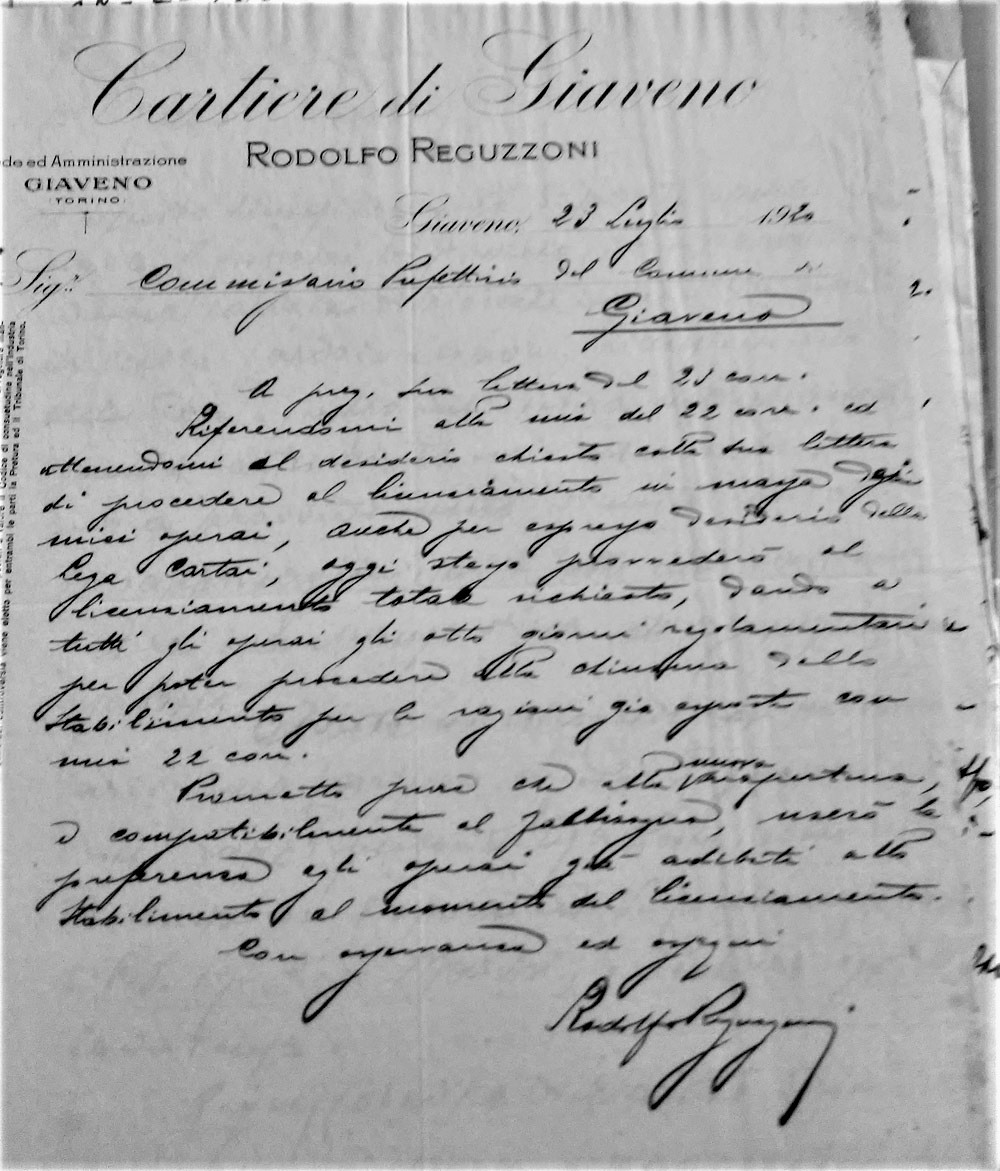 Cartiere di Giaveno
RODOLFO REGUZZONI
de ed Amministrazione
GIAVENO
(TORINO)
Giaveno, 23 Luglio 1920
Sig.r Commissario Prefettizio del Comune di
Giaveno
A preg. sua lettera del 23 corr.
Riferendomi alla mia del 22 corr. ed
attenendomi al desiderio chiesto colla sua lettera
di procedere al licenziamento in massa degli
miei operai, anche per espresso desiderio della
Lega Cartai, oggi stesso provvederò al
licenziamento totale richiesto, dando a
tutti gli operai gli otto giorni regolamentari
per poter procedere alla chiusura dello
Stabilimento per le ragioni già esposte con
mia 22 corr.
Prometto pure che alla nuova riapertura,
e compatibilmente al fabbisogno, userò la
preferenza agli operai già adibiti allo
Stabilimento al momento del licenziamento.
Con osservanza ed ossequi
Rodolfo Reguzzoni
controversia viene eletto per entrambi le parti la Pretura ed il Tribunale di Torino.
Codice di consuetudine nell'industria